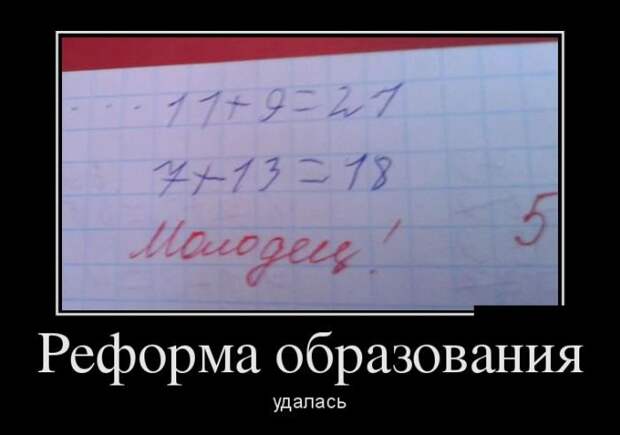 11+9=21
7+13=18
Молодец! 5
Реформа образования
удалась